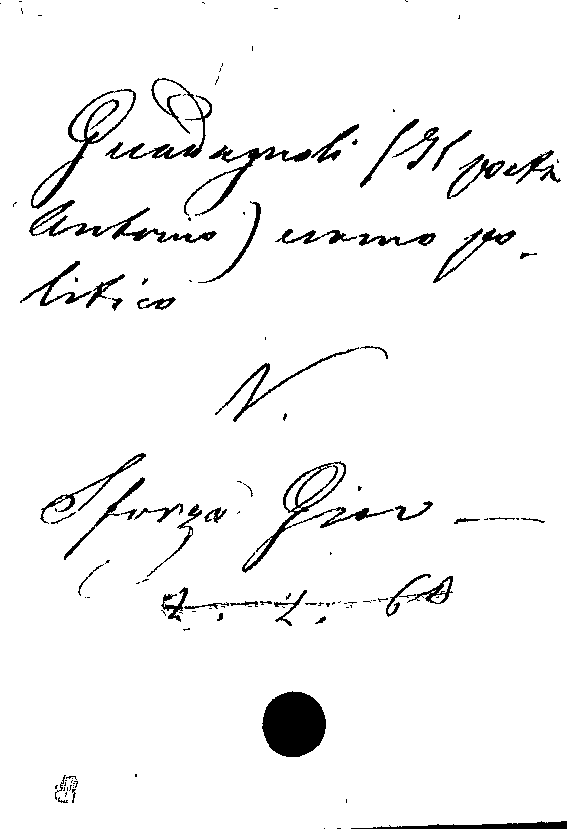 Guadagnoli (Il poeta
Antonio) uomo po-
litico
V.
Sforza Giov —
Z. Z. 68